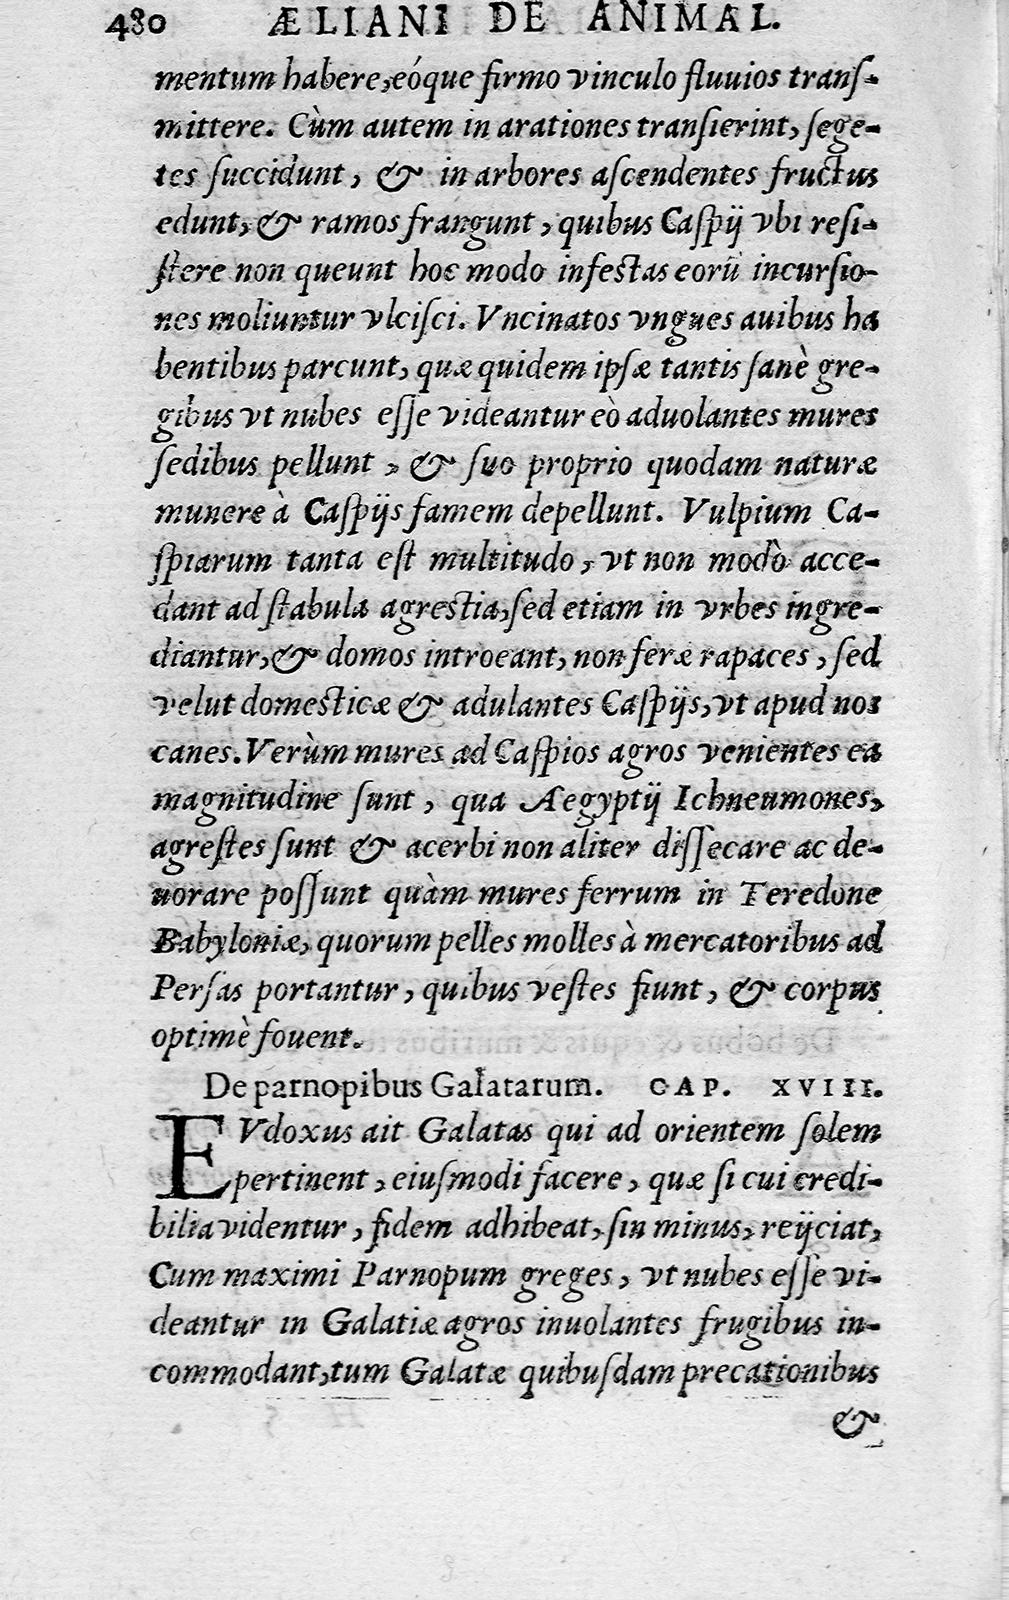 480 ÆLIANI DE ANIMAL.
mentum habere, eóque firmo vinculo fluuios tranſ-
mittere. Cùm autem in arationes tranſierint, ſege-
tes ſuccidunt, & in arbores aſcendentes fructus
edunt, & ramos frangunt, quibus Caſpij vbi reſi-
ſtere non queunt hoc modo infeſtas eorū incurſio-
nes moliuntur vlciſci. Vncinatos vngues auibus ha
bentibus parcunt, quæ quidem ipſæ tantis ſanè gre-
gibus vt nubes eſſe videantur eò aduolantes mures
ſedibus pellunt, & ſuo proprio quodam naturæ
munere à Caſpijs famem depellunt. Vulpium Ca-
ſpiarum tanta eſt multitudo, vt non modò acce-
dant ad ſtabula agreſtia, ſed etiam in vrbes ingre-
diantur, & domos introeant, non feræ rapaces, ſed
velut domeſticæ & adulantes Caſpijs, vt apud nos
canes. Verùm mures ad Caſpios agros venientes ea
magnitudine ſunt, qua Aegyptij Ichneumones,
agreſtes ſunt & acerbi non aliter diſſecare ac de-
uorare poſſunt quàm mures ferrum in Teredone
Babyloniæ, quorum pelles molles à mercatoribus ad
Perſas portantur, quibus veſtes fiunt, & corpus
optimè fouent.
De parnopibus Galatarum. CAP. XVIII.
EVdoxus ait Galatas qui ad orientem ſolem
pertinent, eiuſmodi facere, quæ ſi cui credi-
bilia videntur, fidem adhibeat, ſin minus, reijciat,
Cum maximi Parnopum greges, vt nubes eſſe vi-
deantur in Galatiæ agros inuolantes frugibus in-
commodant, tum Galatæ quibuſdam precationibus
&